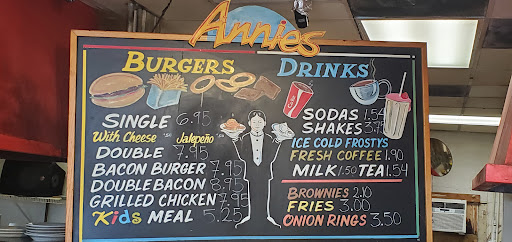 Annies
BURGERS
SINGLE 6.95
With Cheese .50 Jalapeño .50
DOUBLE 7.95
BACON BURGER 7.95
DOUBLE BACON 8.95
GRILLED CHICKEN 7.95
Kids MEAL 5.25
DRINKS
SODAS 1.54
SHAKES 3.75
ICE COLD FROSTYS
FRESH COFFEE 1.90
MILK 1.50 TEA 1.54
BROWNIES 2.10
FRIES 3.00
ONION RINGS 3.50